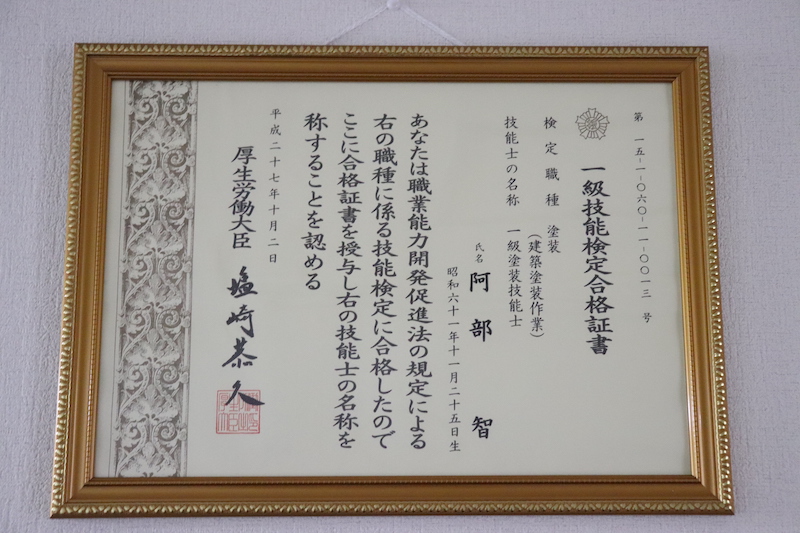 第一五-一-〇六〇-一一-〇〇一三号
一級技能検定合格証書
検定職種 塗装
(建築塗装作業)
技能士の名称 一級塗装技能士
氏名 阿部 智
昭和六十一年十一月二十五日生
あなたは職業能力開発促進法の規定による
右の職種に係る技能検定に合格したので
ここに合格証書を授与し右の技能士の名称を
称することを認める
平成二十七年十月二日
厚生労働大臣 塩崎恭久